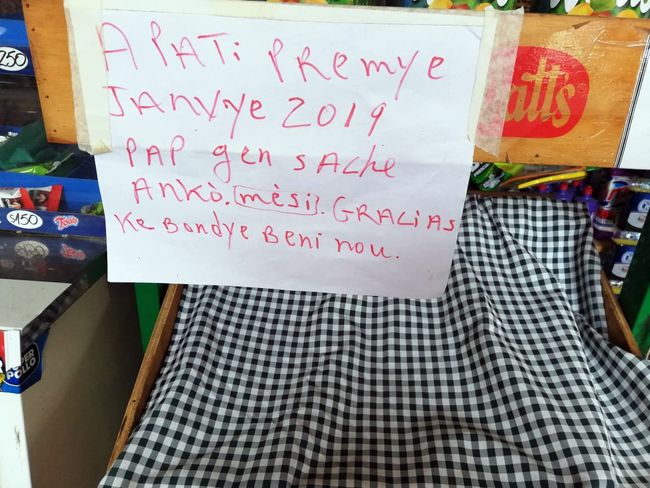 A PATi PREMYE
JANVYE 2019
PAP gen SAChe
ANKÒ. mèsi. GRACiAS
Ke BONdye BENi NOU.
att's
250
$150
SUPER
POLLO